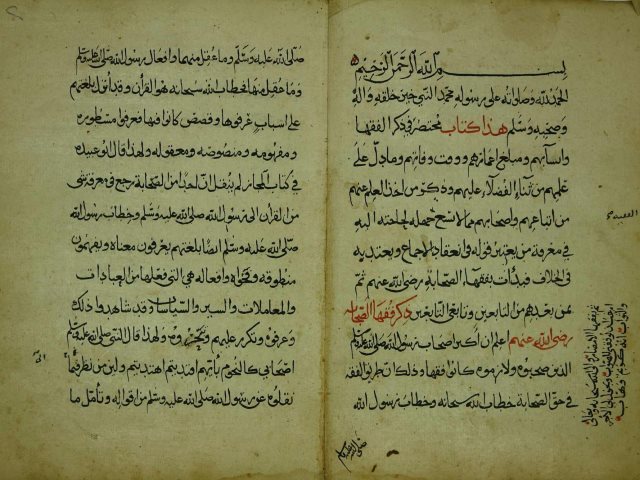 بسم الله الرحمن الرحيم
الحمد لله وصلواته على رسوله محمد النبي خير خلقه واله
وصحبه وسلم هذا كتاب مختصر في ذكر الفقها
وانسابهم ومبلغ اعمارهم ووقت وفاتهم وما دل على
علمهم من ثناء الفضلاء عليهم وذكر من اخذ العلم عنهم
من اتباعهم واصحابهم مما لا يسع جهله لحاجته اليه
في معرفة من يعتبر قوله وانعقاد الاجماع ويعتد به
في الخلاف فبدأت بفقهاء الصحابة رضي الله عنهم ثم
بمن بعدهم من التابعين وتابعي التابعين ذكر فقها الصحابة
رضي الله عنهم اعلم ان اكثر اصحاب رسول الله صلى الله عليه وسلم
الذين صحبوه ولازموه كانوا فقها وذلك ان طريق الفقه
في حق الصحابة خطاب الله سبحانه وخطاب رسول الله
صلى الله عليه وسلم
صلى الله عليه وسلم وما عقل منهما وافعال رسول الله صلى الله عليه وسلم
وما عقل منها فخطاب الله سبحانه هو القرأن وقد انزل بلغتهم
على اسباب عرفوها وقصص كانوا فيها فعرفوا مسطوره
ومفهومه ومنصوصه ومعقوله ولهذا قال ابو عبيده
في كتاب المجاز لم ينقل ان احدا من الصحابة رجع في معرفة شي
من القرأن الى رسول الله صلى الله عليه وسلم وخطاب رسول الله
صلى الله عليه وسلم ايضا بلغتهم يعرفون معناه ويفهمون
منطوقه وفحواه وافعاله هي التي فعلها من العبادات
والمعاملات والسير والسياسات وقد شاهدوا ذلك
وعرفوه وتكرر عليهم ولهذا قال النبي صلى الله عليه وسلم
اصحابي كالنجوم بأيهم اقتديتم اهتديتم ولان من نظر فيما
نقلوه عن رسول الله صلى الله عليه وسلم من اقواله وتأمل ما